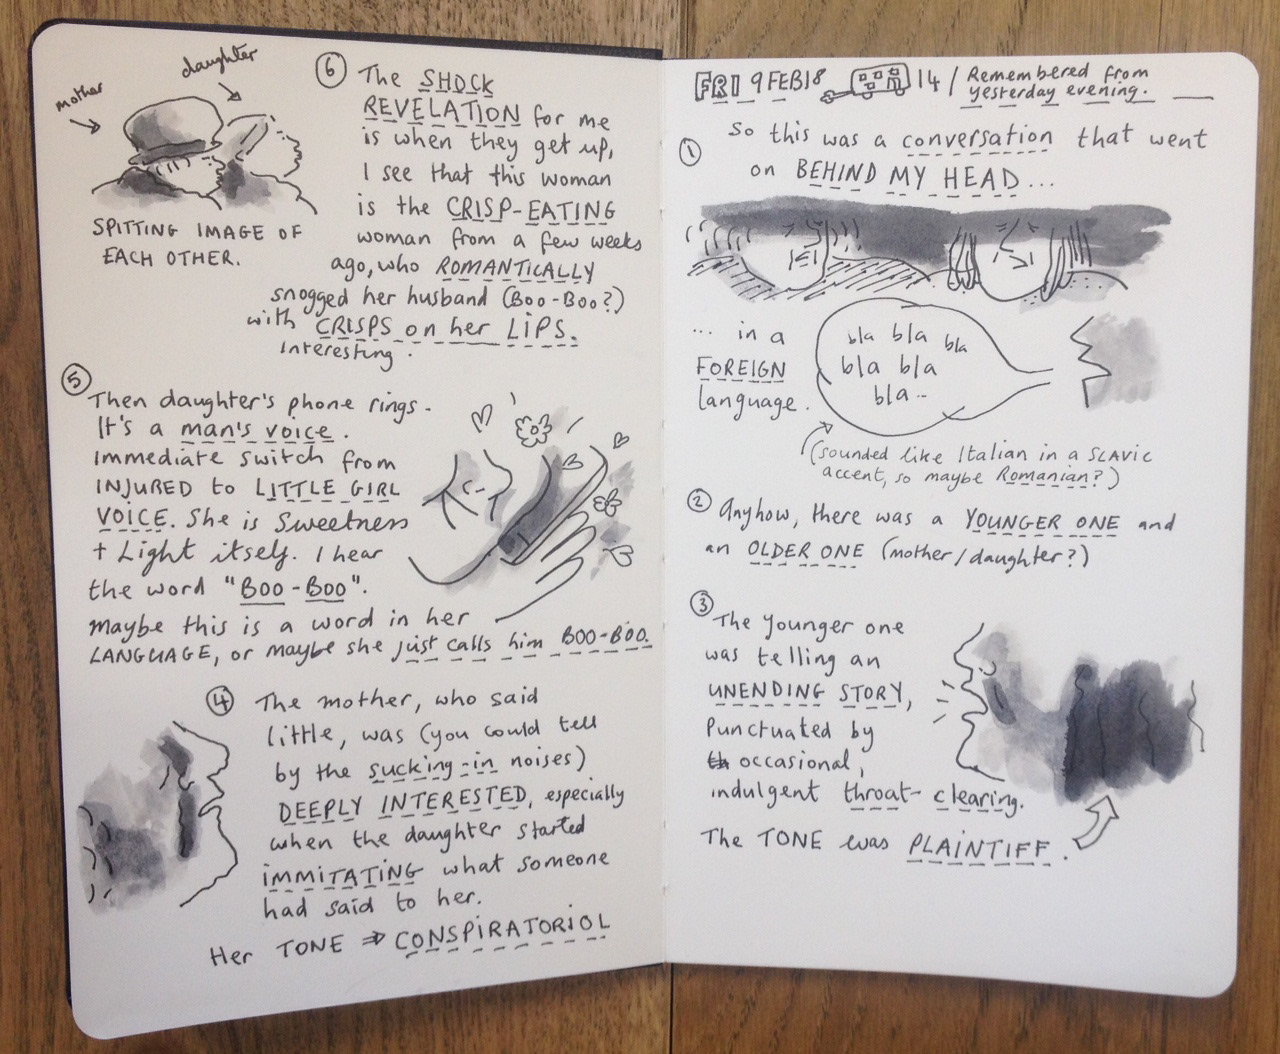 FRI 9 FEB 18 14 / Remembered from
yesterday evening.
① So this was a conversation that went
on BEHIND MY HEAD...
... in a
FOREIGN
language.
bla bla bla
bla bla
bla..
(sounded like Italian in a SLAVIC
accent, so maybe Romanian?)
② Anyhow, there was a YOUNGER ONE and
an OLDER ONE (mother/daughter?)
③ The younger one
was telling an
UNENDING STORY,
punctuated by
occasional,
indulgent throat-clearing.
The TONE was PLAINTIFF.
④ The mother, who said
little, was (you could tell
by the sucking-in noises)
DEEPLY INTERESTED, especially
when the daughter started
IMMITATING what someone
had said to her.
Her TONE ⇒ CONSPIRATORIOL
⑤ Then daughter's phone rings.
It's a man's voice.
Immediate switch from
INJURED to LITTLE GIRL
VOICE. She is Sweetness
+ Light itself. I hear
the word "BOO-BOO".
Maybe this is a word in her
LANGUAGE, or maybe she just calls him BOO-BOO.
⑥ The SHOCK
REVELATION for me
is when they get up,
I see that this woman
is the CRISP-EATING
woman from a few weeks
ago, who ROMANTICALLY
snogged her husband (Boo-Boo?)
with CRISPS on her LIPS.
Interesting.
mother
daughter
SPITTING IMAGE OF
EACH OTHER.